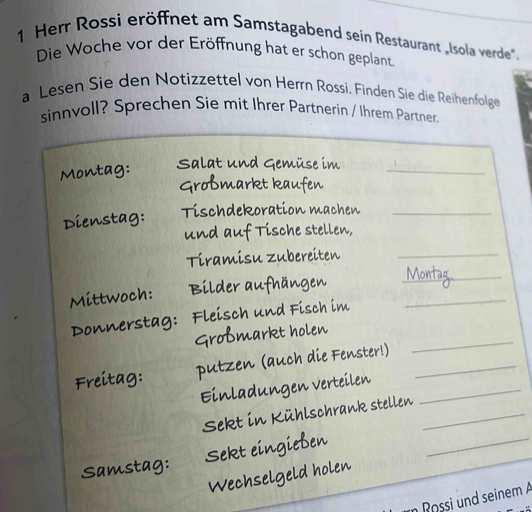 1 Herr Rossi eröffnet am Samstagabend sein Restaurant „Isola verde“.
Die Woche vor der Eröffnung hat er schon geplant.
a Lesen Sie den Notizzettel von Herrn Rossi. Finden Sie die Reihenfolge
sinnvoll? Sprechen Sie mit Ihrer Partnerin / Ihrem Partner.
Montag: Salat und Gemüse im
Großmarkt kaufen
Dienstag: Tischdekoration machen
und auf Tische stellen,
Tiramisu zubereiten
Mittwoch: Bilder aufhängen Montag
Donnerstag: Fleisch und Fisch im
Großmarkt holen
Freitag: putzen (auch die Fenster!)
Einladungen verteilen
Sekt in Kühlschrank stellen
Samstag: Sekt eingießen
Wechselgeld holen
Rossi und seinem